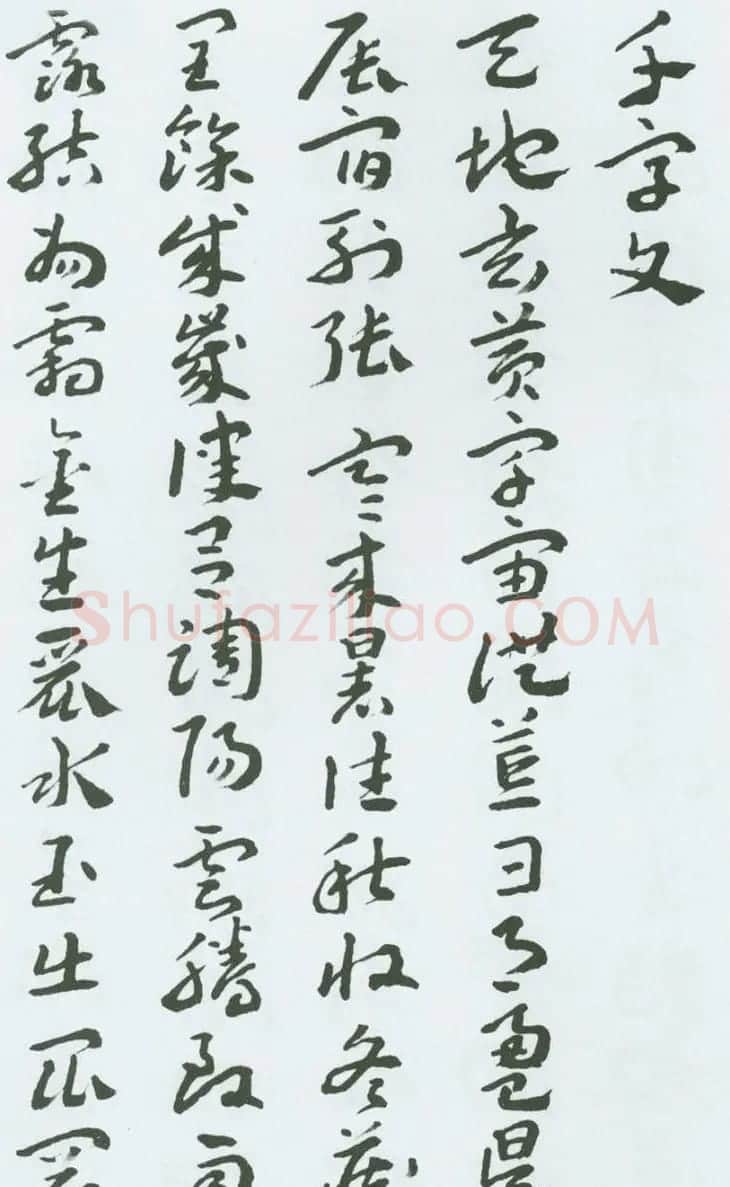 千字文
天地玄黄宇宙洪荒日月盈昃
辰宿列张寒来暑往秋收冬藏
闰馀成岁律吕调阳云腾致雨
露结为霜金生丽水玉出崑冈
Shufaziliao.COM